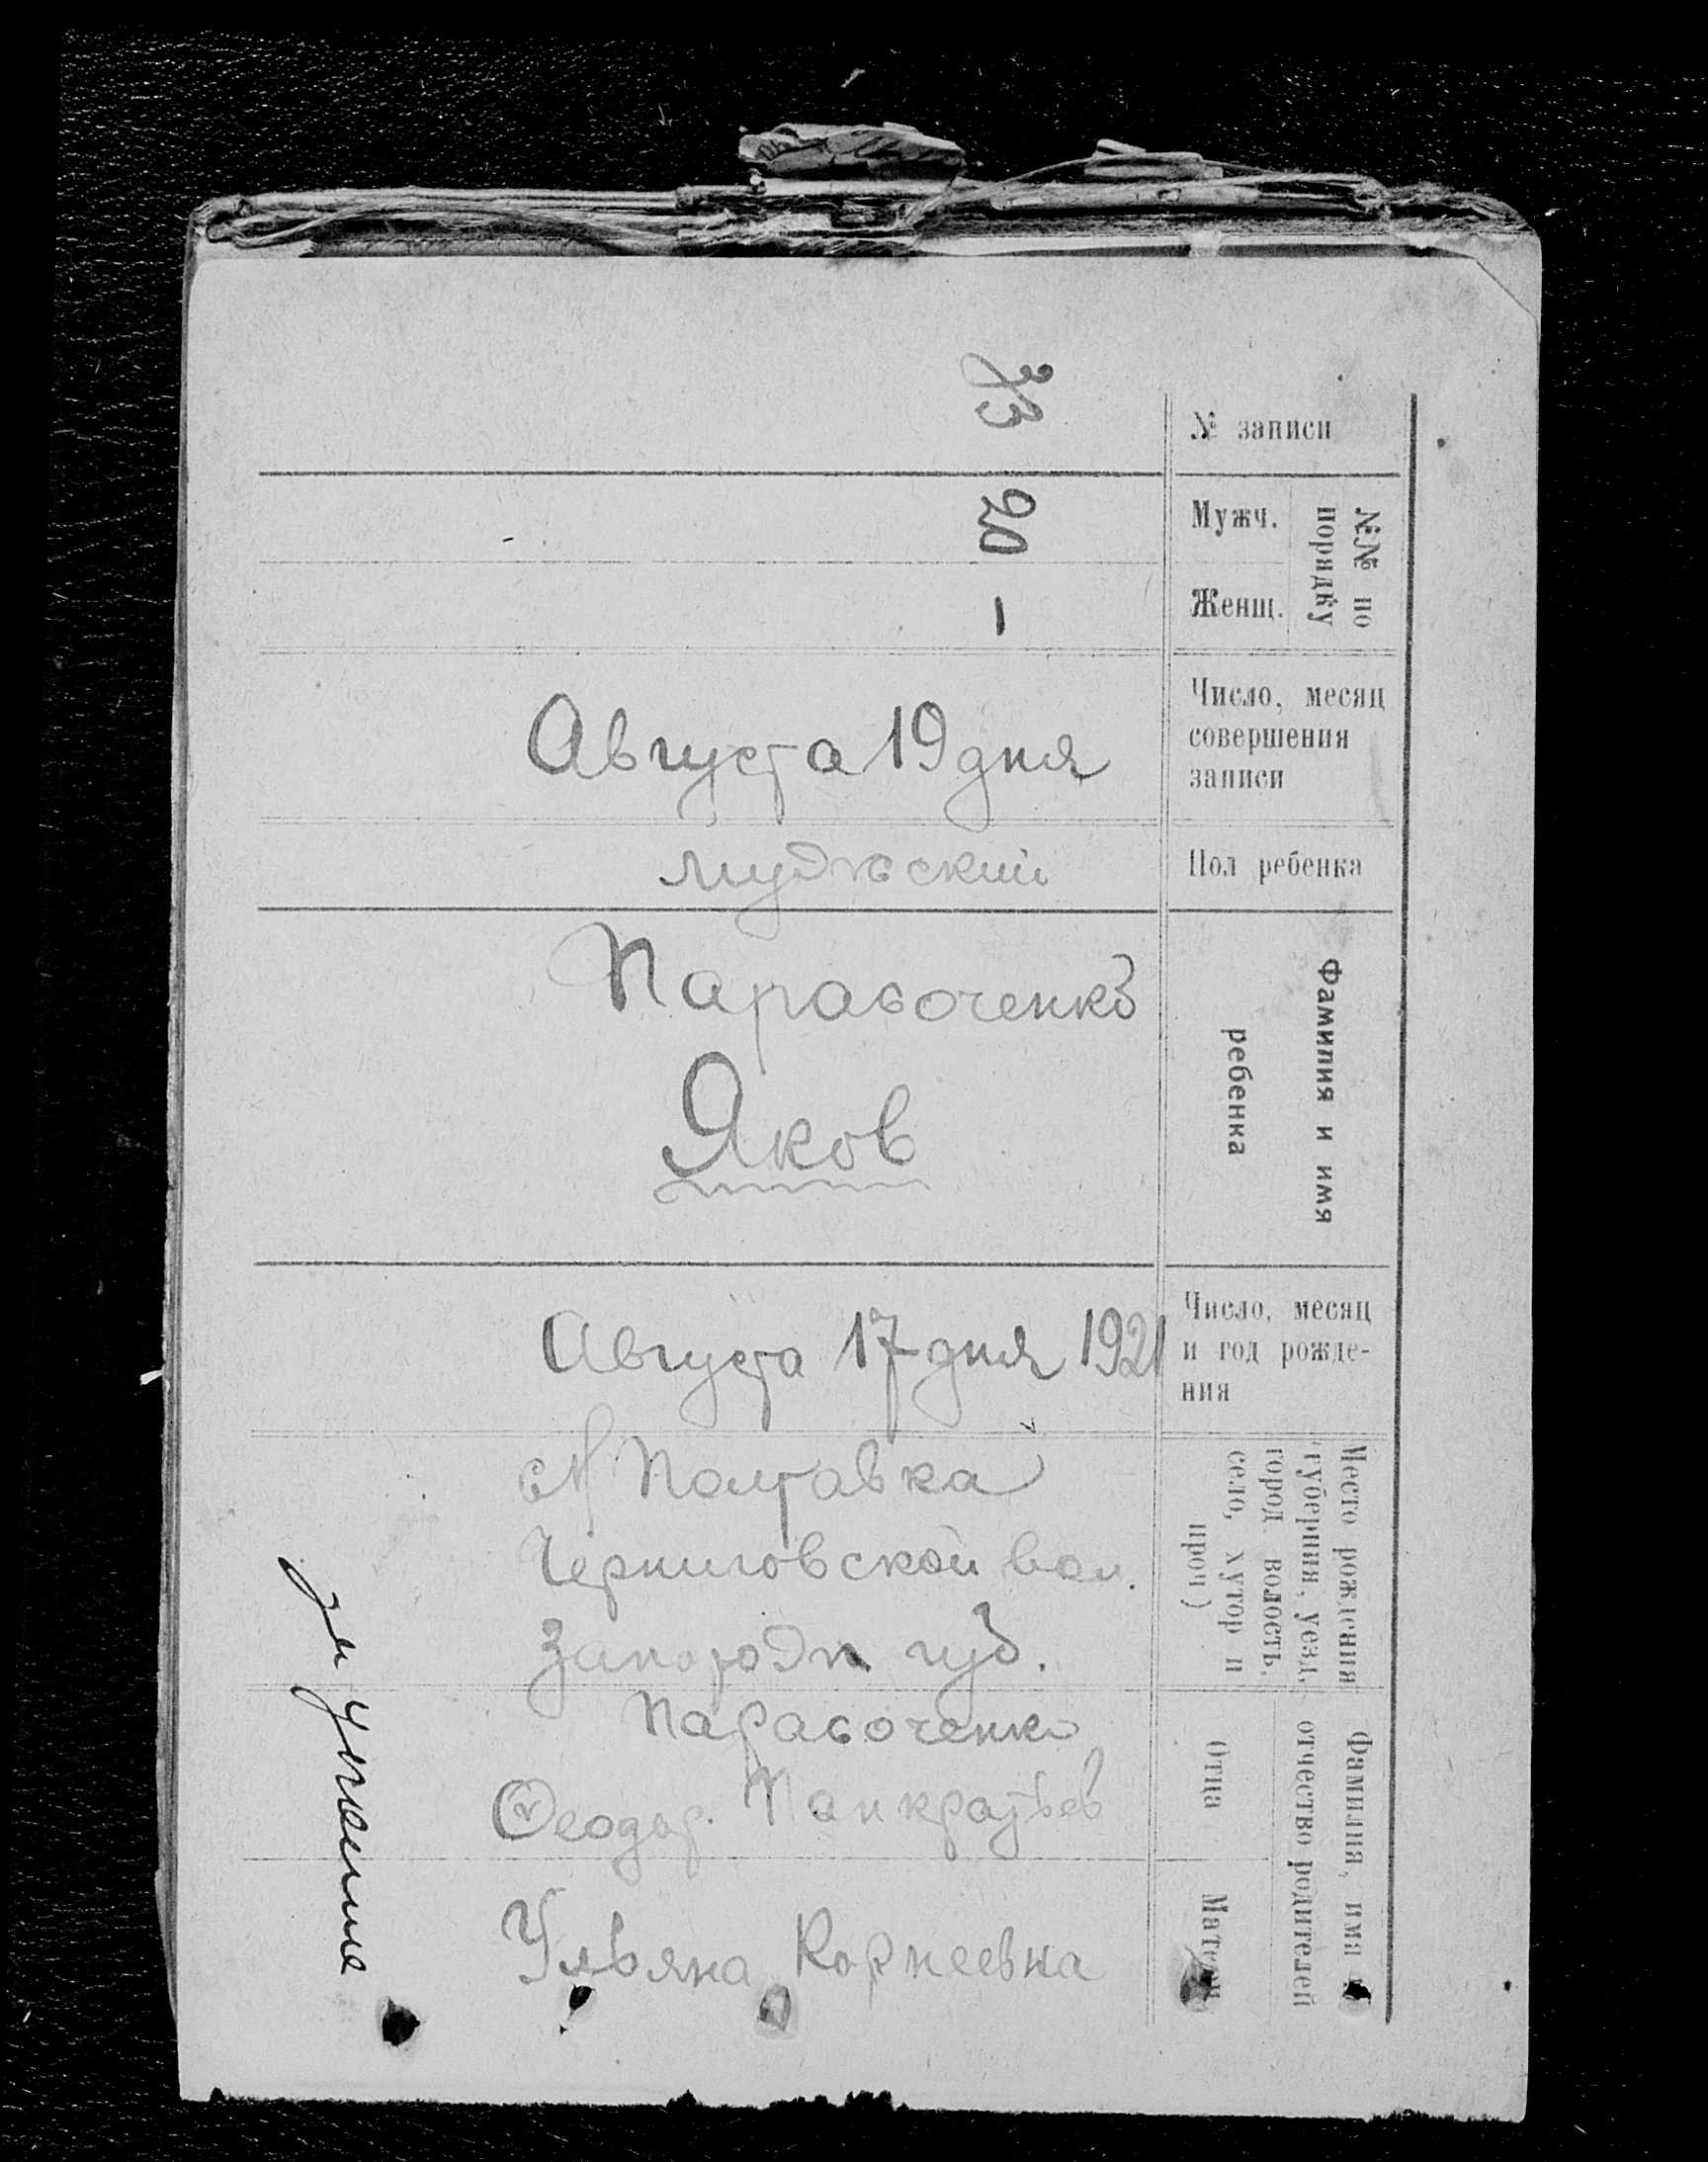 № записи
33
№№ по
порядку
Мужч.
20
Женщ.
–
Число, месяц
совершения
записи
Августа 19 дня
Пол ребенка
мужский
Фамилия и имя
ребенка
Парасоченко
Яков
Число, месяц
и год рожде-
ния
Августа 17 дня 1921
Место рождения
(губерния, уезд,
город волость,
село, хутор и
проч)
Полтавка
Черниговской вол.
Запорожк губ.
Фамилия, имя и
отчество родителей
Отца
Парасоченко
Феодор. Панкратьев
Матери
Ульяна Корнеевна